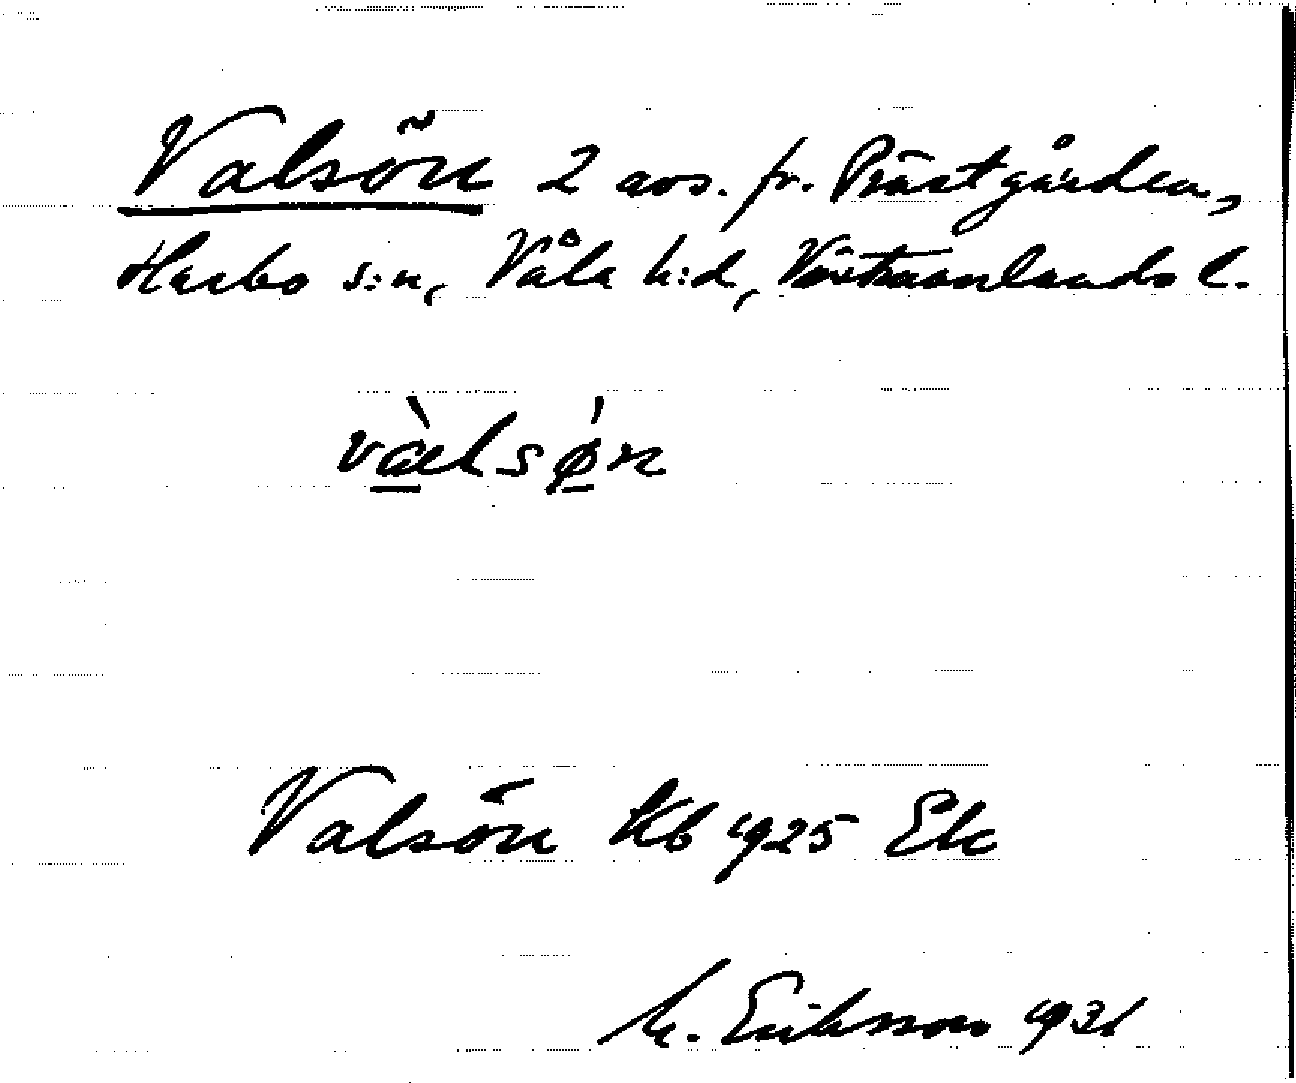 Valsön 2 avs. fr. Prästgården,
Harbo s:n, Våla h:d, Västmanlands l.
vàlsǿn
Valsön Kb 1925 Ek
M. Eriksson 1931